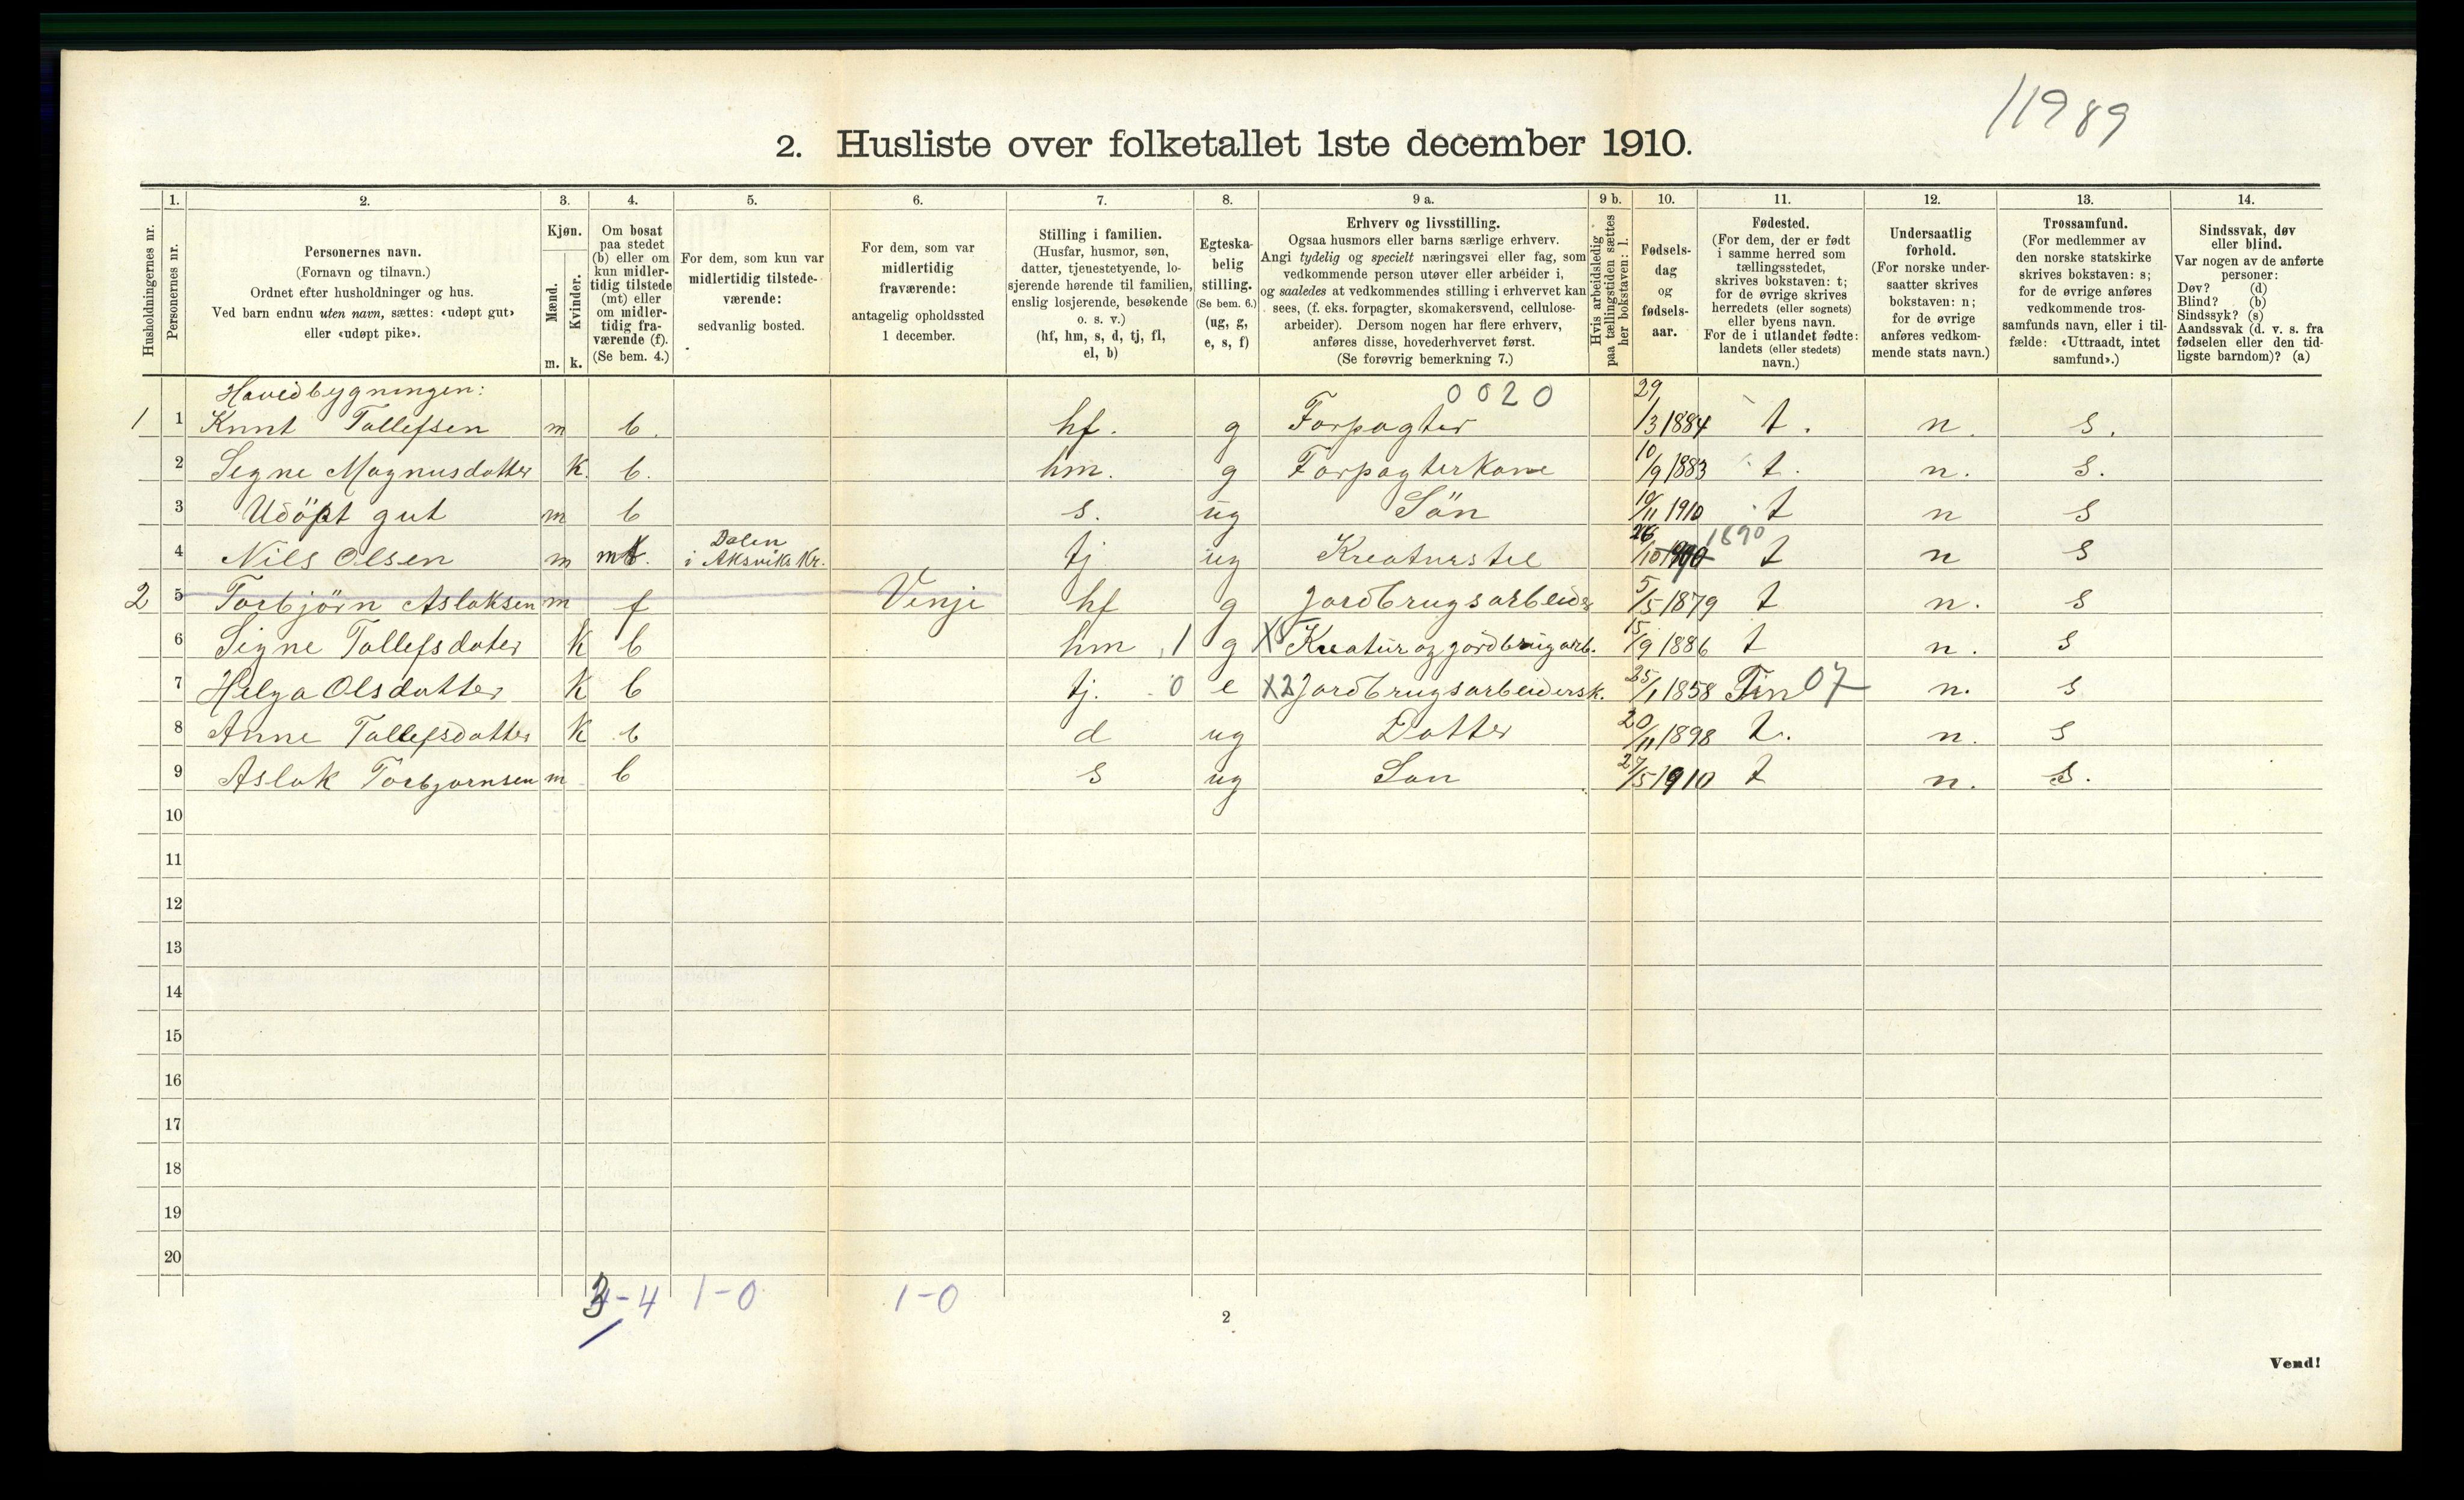 11989
2. Husliste over folketallet 1ste december 1910.
Husholdningernes nr.
1.
Personernes nr.
2.
Personernes navn.
(Fornavn og tilnavn.)
Ordnet efter husholdninger og hus.
Ved barn endnu uten navn, sættes: «udøpt gut»
eller «udøpt pike».
3.
Kjøn.
Mænd.
Kvinder.
m. k.
4.
Om bosat
paa stedet
(b) eller om
kun midler-
tidig tilstede
(mt) eller
om midler-
tidig fra-
værende (f).
(Se bem. 4.)
5.
For dem, som kun var
midlertidig tilstede-
værende:
sedvanlig bosted.
6.
For dem, som var
midlertidig
fraværende:
antagelig opholdssted
1 december.
7.
Stilling i familien.
(Husfar, husmor, søn,
datter, tjenestetyende, lo-
sjerende hørende til familien,
enslig losjerende, besøkende
o. s. v.)
(hf, hm, s, d, tj, fl,
el, b)
8.
Egteska-
belig
stilling.
(Se bem. 6.)
(ug, g,
e, s, f)
9 a.
Erhverv og livsstilling.
Ogsaa husmors eller barns særlige erhverv.
Angi tydelig og specielt næringsvei eller fag, som
vedkommende person utøver eller arbeider i,
og saaledes at vedkommendes stilling i erhvervet kan
sees, (f. eks. forpagter, skomakersvend, cellulose-
arbeider). Dersom nogen har flere erhverv,
anføres disse, hovederhvervet først.
(Se forøvrig bemerkning 7.)
9 b.
Hvis arbeidsledig
paa tællingstiden sættes
her bokstaven: l.
10.
Fødsels-
dag
og
fødsels-
aar.
11.
Fødested.
(For dem, der er født
i samme herred som
tællingsstedet,
skrives bokstaven: t;
for de øvrige skrives
herredets (eller sognets)
eller byens navn.
For de i utlandet fødte:
landets (eller stedets)
navn.)
12.
Undersaatlig
forhold.
(For norske under-
saatter skrives
bokstaven: n;
for de øvrige
anføres vedkom-
mende stats navn.)
13.
Trossamfund.
(For medlemmer av
den norske statskirke
skrives bokstaven: s;
for de øvrige anføres
vedkommende tros-
samfunds navn, eller i til-
fælde: «Uttraadt, intet
samfund».)
14.
Sindssvak, døv
eller blind.
Var nogen av de anførte
personer:
Døv? (d)
Blind? (b)
Sindssyk? (s)
Aandssvak (d. v. s. fra
fødselen eller den tid-
ligste barndom)? (a)
Hovedbygningen: 0020
1 1 Knut Tollefsen m b. hf. g Forpagter 29/3 1884 t. n. s.
2 Signe Magnusdatter K. b. hm. g Forpagterkone 10/9 1883 t. n. s.
3 Udöpt gut m b s. ug Sön 10/11 1910 t n s
4 Nils Olsen m mt. Dalen i Aksviks Kr. tj ug Kreaturstel 26/10 1890 t n s
2 5 Torbjörn Aslaksen m f Venje hf g Jordbrugsarbeider 5/5 1879 t n. s
6 Signe Tollefsdater K b hm 1 g X Kreatur og jordbrugarb. 15/9 1886 t n. s
7 Helga Olsdatter K b tj. 0 e X2 Jordbrugsarbeidersk. 25/1 1858 Tin 07 n. s
8 Anne Tollefsdatter K b d ug Datter 20/11 1898 t. n. s
9 Aslak Torbjornsen m b s ug Son 27/5 1910 t n. s.
10
11
12
13
14
15
16
17
18
19
20
3-4 1-0 1-0
2
Vend!